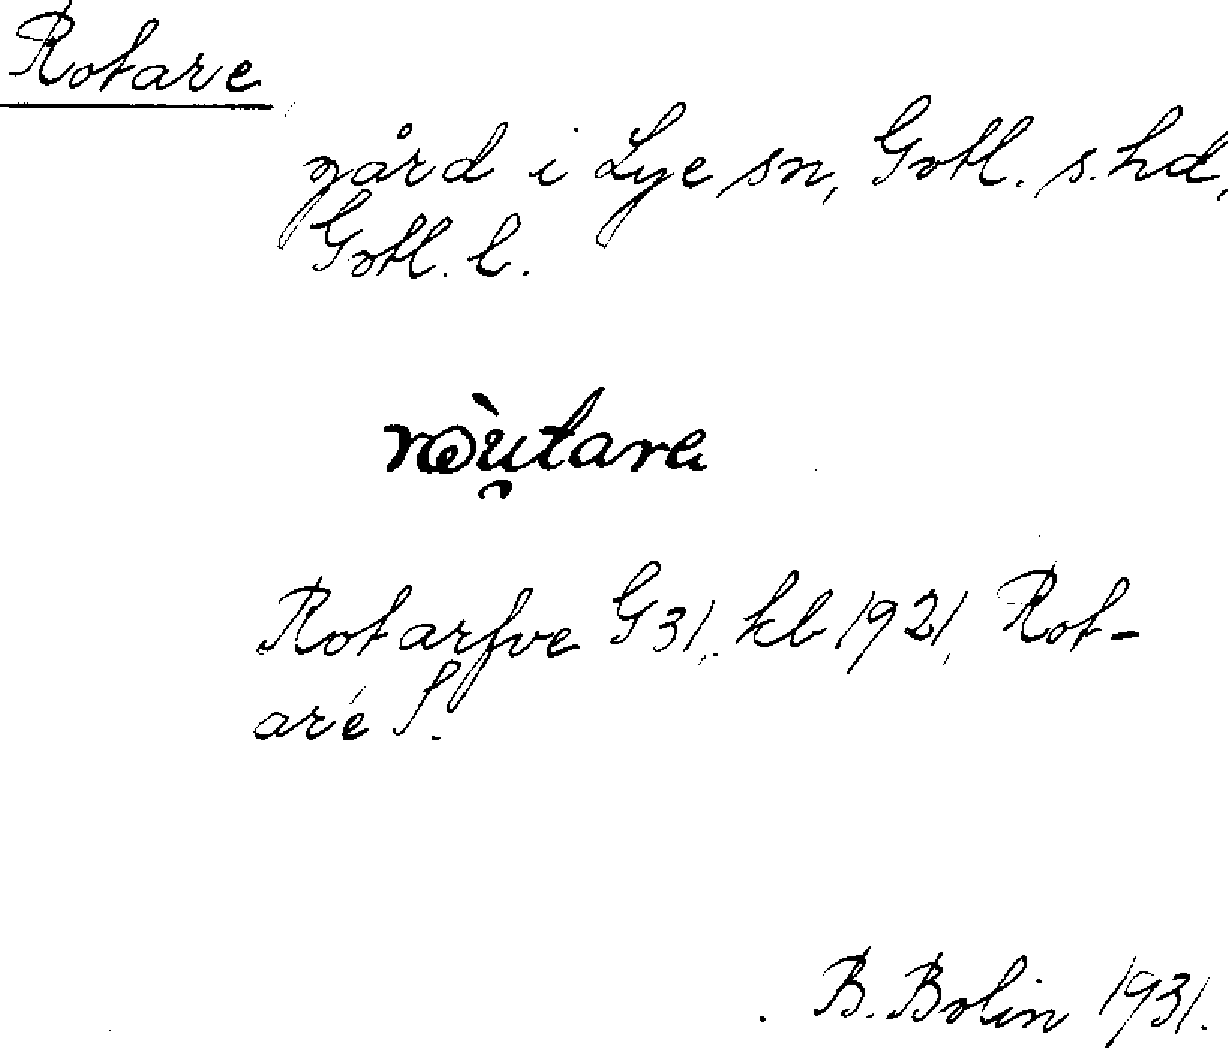 Rotare
gård i Lye sn, Gotl. s. hd,
Gotl. l.
rωù̯tarɐ
Rotarfve G31, kb 1921, Rot-
aré S.
B. Bolin 1931.